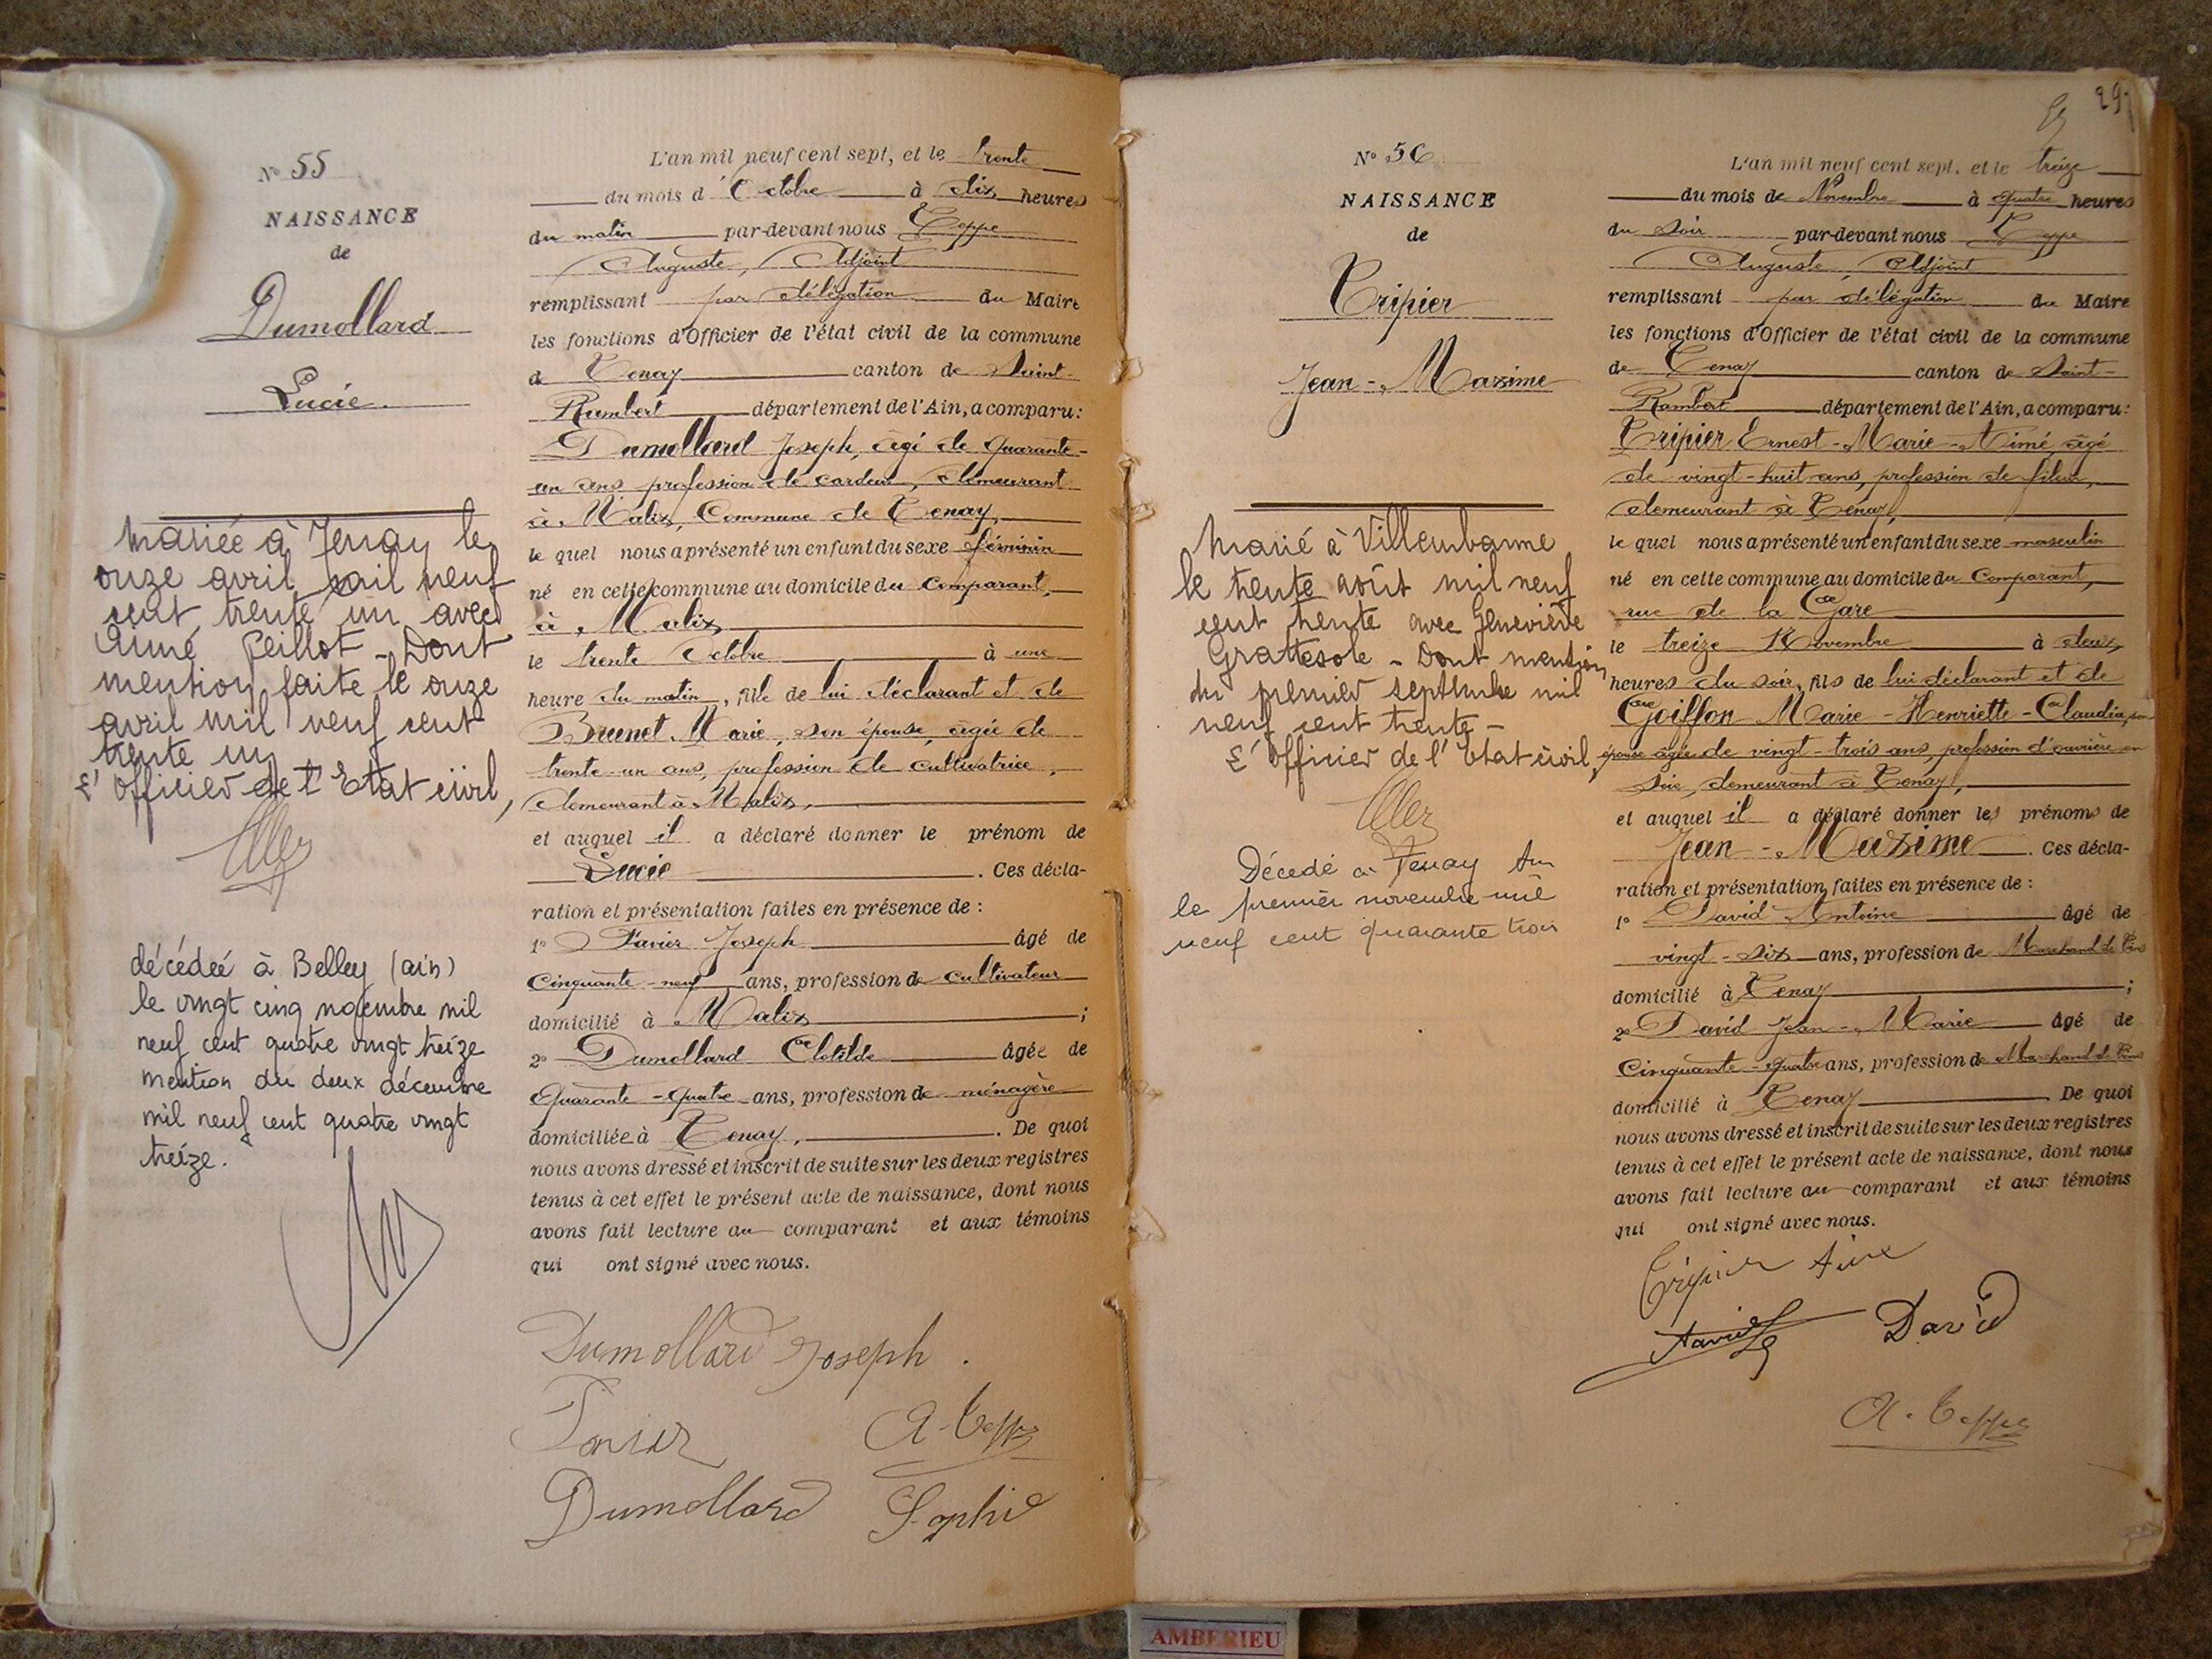 N° 55
NAISSANCE
de
Dumollard
Lucie.
Mariée à Tenay le
onze avril mil neuf
cent trente un avec
Aimé Peillot - Dont
mention faite le onze
avril mil neuf cent
trente un
L'Officier de l'Etat civil,
décédée à Belley (ain)
le vingt cinq novembre mil
neuf cent quatre vingt treize
mention du deux décembre
mil neuf cent quatre vingt
treize.
L'an mil neuf cent sept, et le trente
du mois d'Octobre à dix heures
du matin par-devant nous Teppe
Auguste, Adjoint
remplissant par délégation du Maire
les fonctions d'Officier de l'état civil de la commune
de Tenay canton de Saint-
Rambert département de l'Ain, a comparu :
Dumollard Joseph, âgé de quarante-
un ans profession de cardeur, demeurant
à Malix, Commune de Tenay,
le quel nous a présenté un enfant du sexe féminin
né en cette commune au domicile du comparant,
à Malix
le trente Octobre à une
heure du matin, fille de lui déclarant et de
Brunet Marie, son épouse, âgée de
trente-un ans, profession de cultivatrice,
demeurant à Malix,
et auquel il a déclaré donner le prénom de
Lucie . Ces décla-
ration et présentation faites en présence de :
1° Xavier Joseph âgé de
Cinquante-neuf ans, profession de cultivateur
domicilié à Malix ;
2° Dumollard Clotilde âgée de
Quarante-quatre ans, profession de ménagère
domiciliée à Tenay, . De quoi
nous avons dressé et inscrit de suite sur les deux registres
tenus à cet effet le présent acte de naissance, dont nous
avons fait lecture au comparant et aux témoins
qui ont signé avec nous.
Dumollard Joseph.
A. Teppe
Dumollard Sophie
29
N° 56
NAISSANCE
de
Tripier
Jean-Maxime
Marié à Villeurbanne
le trente août mil neuf
cent trente avec Geneviève
Grattesole - Dont mention
du premier septembre mil
neuf cent trente -
L'Officier de l'Etat civil,
Décédé à Tenay Ain
le premier novembre mil
neuf cent quarante trois
L'an mil neuf cent sept, et le treize
du mois de Novembre à quatre heures
du soir par-devant nous Teppe
Auguste, Adjoint
remplissant par délégation du Maire
les fonctions d'Officier de l'état civil de la commune
de Tenay canton de Saint-
Rambert département de l'Ain, a comparu :
Tripier Ernest-Marie-Aimé, âgé
de vingt-huit ans, profession de fileur,
demeurant à Tenay,
le quel nous a présenté un enfant du sexe masculin
né en cette commune au domicile du comparant,
rue de la Gare
le treize Novembre à deux
heures du soir, fils de lui déclarant et de
Goiffon Marie-Henriette-Claudia, son
épouse âgée de vingt-trois ans, profession d'ouvrière en
soie, demeurant à Tenay,
et auquel il a déclaré donner les prénoms de
Jean-Maxime . Ces décla-
ration et présentation faites en présence de :
1° David Antoine âgé de
vingt-six ans, profession de Marchand de Vins
domicilié à Tenay ;
2° David Jean-Marie âgé de
Cinquante-quatre ans, profession de Marchand de Vins
domicilié à Tenay . De quoi
nous avons dressé et inscrit de suite sur les deux registres
tenus à cet effet le présent acte de naissance, dont nous
avons fait lecture au comparant et aux témoins
qui ont signé avec nous.
Tripier Aimé
David David
A. Teppe
AMBERIEU